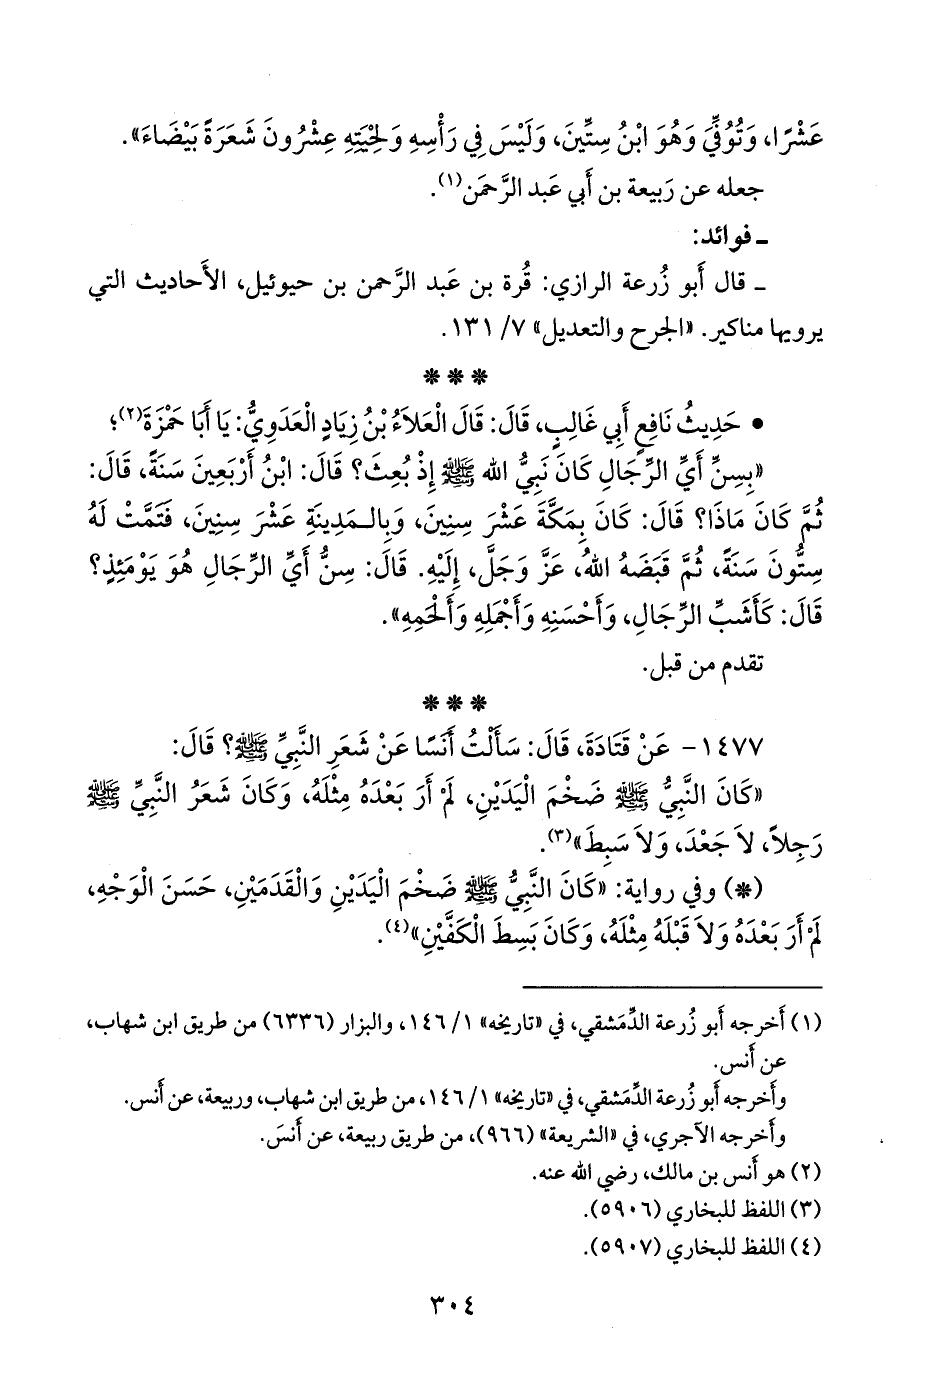 عَشْرًا، وَتُوُفِّيَ وَهُوَ ابْنُ سِتِّينَ، وَلَيْسَ فِي رَأْسِهِ وَلِحْيَتِهِ عِشْرُونَ شَعَرَةً بَيْضَاءَ».
جعله عن رَبيعة بن أَبي عَبد الرَّحمَن(١).
ـ فوائد:
ـ قال أَبو زُرعة الرازي: قُرة بن عَبد الرَّحمن بن حيوئيل، الأَحاديث التي
يرويها مناكير. «الجرح والتعديل» ٧/ ١٣١.
* * *
• حَدِيثُ نَافِعٍ أَبِي غَالِبٍ، قَالَ: قَالَ الْعَلاَءُ بْنُ زِيَادٍ الْعَدَوِيُّ: يَا أَبَا حَمْزَةَ(٢)؛
«بِسِنِّ أَيِّ الرِّجَالِ كَانَ نَبِيُّ الله ﷺ إِذْ بُعِثَ؟ قَالَ: ابْنُ أَرْبَعِينَ سَنَةً، قَالَ:
ثُمَّ كَانَ مَاذَا؟ قَالَ: كَانَ بِمَكَّةَ عَشْرَ سِنِينَ، وَبِالْـمَدِينَةِ عَشْرَ سِنِينَ، فَتَمَّتْ لَهُ
سِتُّونَ سَنَةً، ثُمَّ قَبَضَهُ اللهُ، عَزَّ وَجَلَّ، إِلَيْهِ. قَالَ: سِنُّ أَيِّ الرِّجَالِ هُوَ يَوْمَئِذٍ؟
قَالَ: كَأَشَبِّ الرِّجَالِ، وَأَحْسَنِهِ وَأَجْمَلِهِ وَأَلْحَمِهِ».
تقدم من قبل.
* * *
١٤٧٧- عَنْ قَتَادَةَ، قَالَ: سَأَلْتُ أَنَسًا عَنْ شَعَرِ النَّبِيِّ ﷺ؟ قَالَ:
«كَانَ النَّبِيُّ ﷺ ضَخْمَ الْيَدَيْنِ، لَمْ أَرَ بَعْدَهُ مِثْلَهُ، وَكَانَ شَعَرُ النَّبِيِّ ﷺ
رَجِلاً، لاَ جَعْدَ، وَلاَ سَبِطَ»(٣).
(*) وفي رواية: «كَانَ النَّبِيُّ ﷺ ضَخْمَ الْيَدَيْنِ وَالْقَدَمَيْنِ، حَسَنَ الْوَجْهِ،
لَمْ أَرَ بَعْدَهُ وَلاَ قَبْلَهُ مِثْلَهُ، وَكَانَ بَسِطَ الْكَفَّيْنِ»(٤).
(١) أَخرجه أَبو زُرعة الدِّمَشقي، في «تاريخه» ١/ ١٤٦، والبزار (٦٣٣٦) من طريق ابن شهاب،
عن أَنس.
وأَخرجه أَبو زُرعة الدِّمَشقي، في «تاريخه» ١/ ١٤٦، من طريق ابن شهاب، وربيعة، عن أَنس.
وأَخرجه الآجري، في «الشريعة» (٩٦٦)، من طريق ربيعة، عن أَنسَ.
(٢) هو أَنس بن مالك، رضي الله عنه.
(٣) اللفظ للبخاري (٥٩٠٦).
(٤) اللفظ للبخاري (٥٩٠٧).
٣٠٤